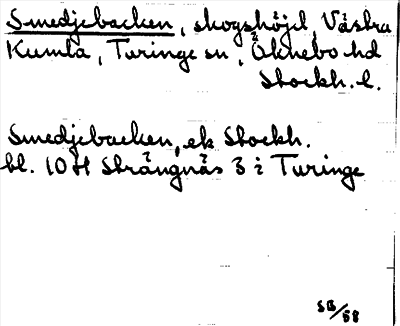 Smedjebacken, skogshöjd, Västra
Kumla, Turinge sn, Öknebo hd
Stockh. l.
Smedjebacken, ek Stockh.
bl. 10H Strängnäs 3 i Turinge
SB/58